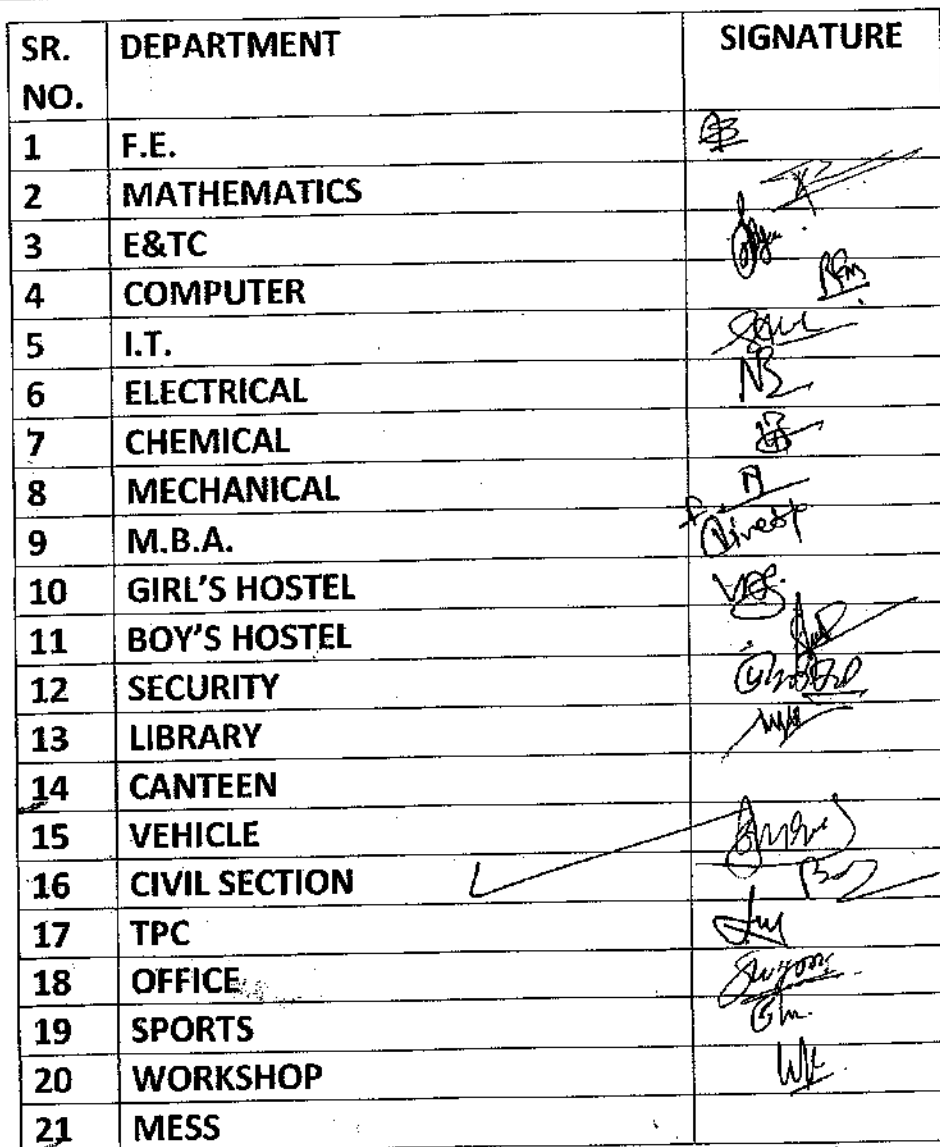 SR. DEPARTMENT SIGNATURE
NO.
1 F.E.
2 MATHEMATICS
3 E&TC
4 COMPUTER
5 I.T.
6 ELECTRICAL
7 CHEMICAL
8 MECHANICAL
9 M.B.A.
10 GIRL'S HOSTEL
11 BOY'S HOSTEL
12 SECURITY
13 LIBRARY
14 CANTEEN
15 VEHICLE
16 CIVIL SECTION
17 TPC
18 OFFICE
19 SPORTS
20 WORKSHOP
21 MESS